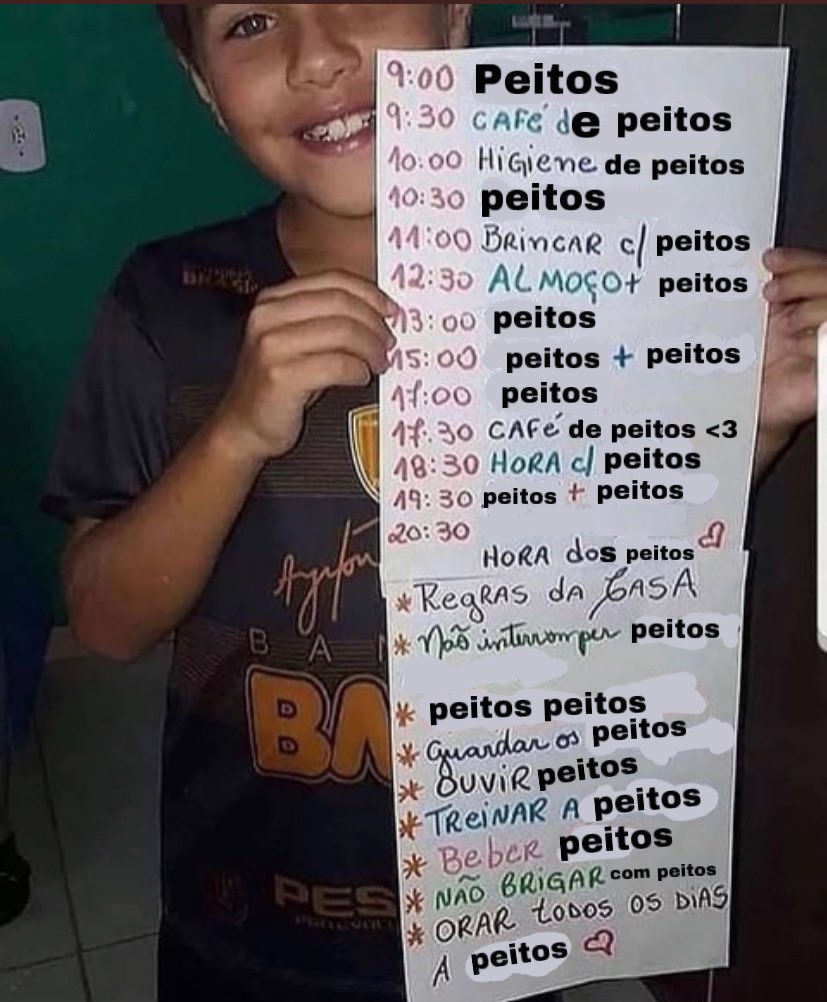 9:00 Peitos
9:30 CAFÉ de peitos
10:00 HiGiene de peitos
10:30 peitos
11:00 BRINCAR c/ peitos
12:30 ALMOÇO + peitos
13:00 peitos
15:00 peitos + peitos
17:00 peitos
17:30 CAFé de peitos <3
18:30 HORA c/ peitos
19:30 peitos + peitos
20:30
HORA dos peitos
* RegRAS DA CASA
* Não interromper peitos
* peitos peitos
* Guardar os peitos
* OUViR peitos
* TReiNAR A peitos
* Beber peitos
* NÃO BRiGAR com peitos
* ORAR todos os DiAS
A peitos
BRASIL
Ayrton
BAN
BA
PES